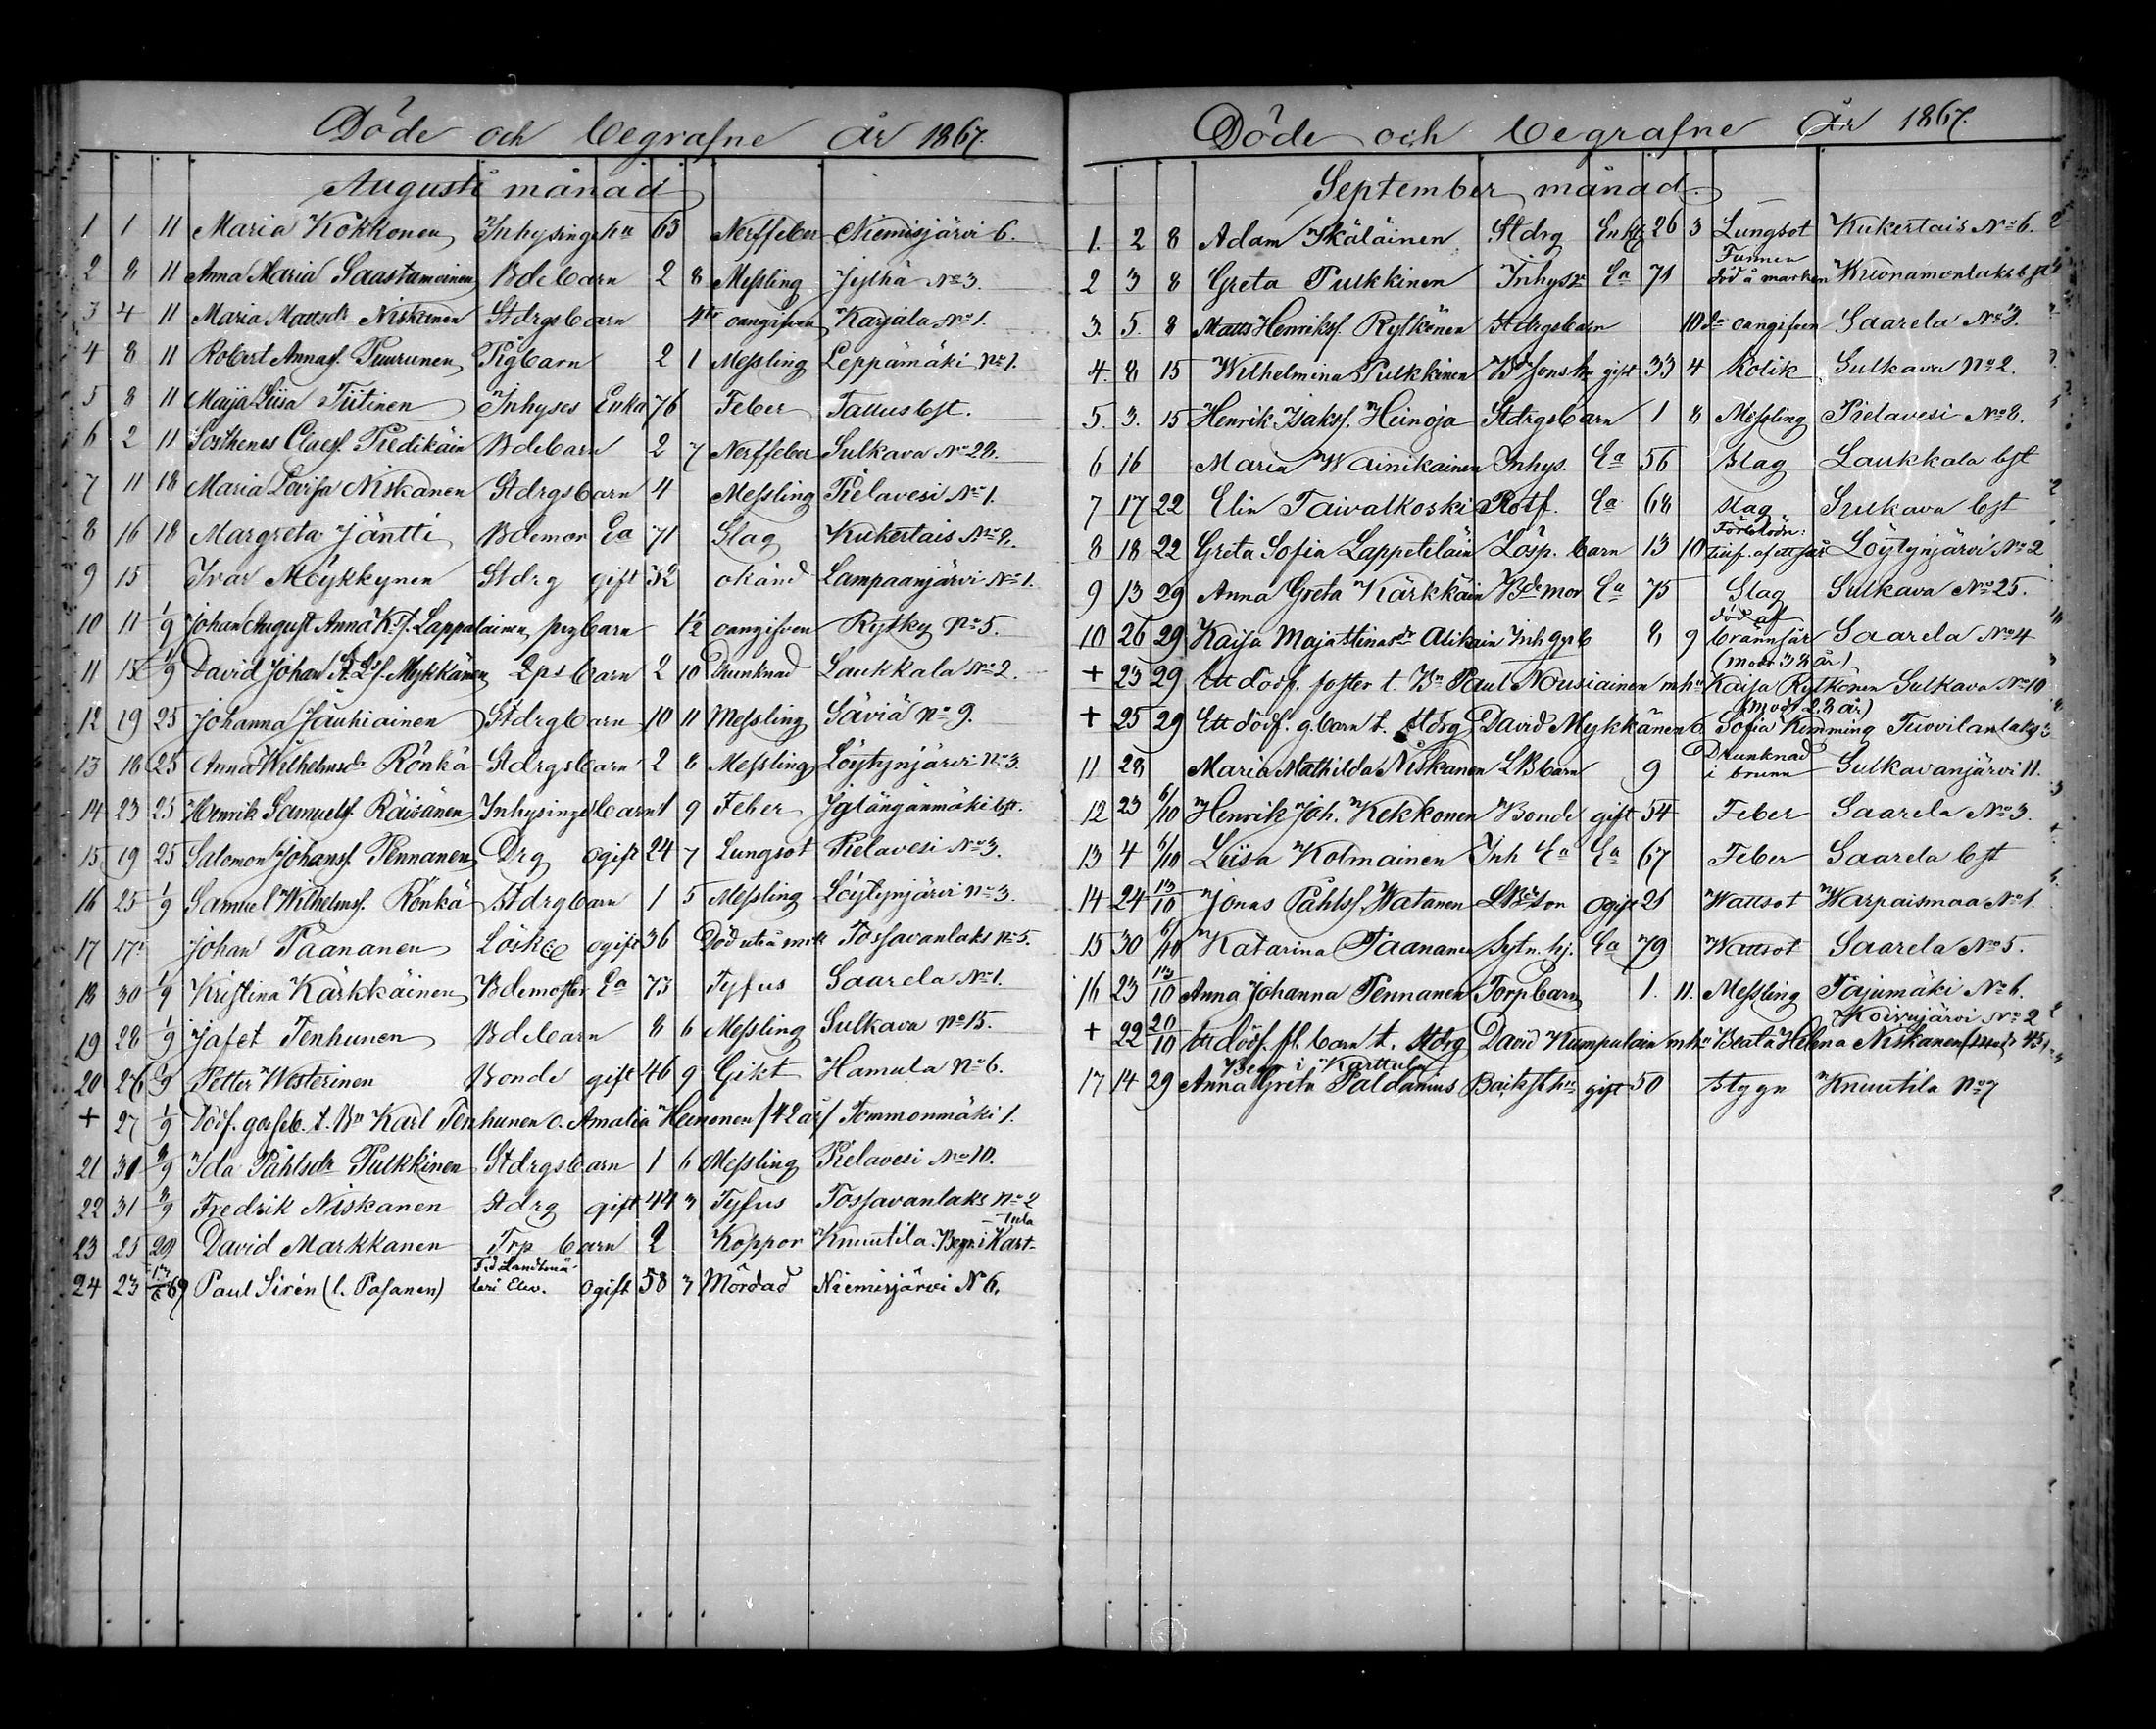 Döde och begrafne År 1867.
Augusti månad
1 1 11 Maria Kokkonen Inhysings hu 63 Nerffeber Niemisjärvi 6.
2 8 11 Anna Maria Saastamoinen Bdebarn 2 8 Messling Jylhä No 3.
3 4 11 Maria Mattsdr Niskanen Stdrgsbarn oangifven Karjala No 1.
4 8 11 Robert Annas. Puurunen Pigbarn 2 1 Messling Leppämäki No 1.
5 8 11 Maija Liisa Tiitinen Inhyses Enka 76 Feber Tallus bst.
6 2 11 Sosthenes Claess. Piedikäin Bdebarn 2 7 Nerffeber Sulkava No 28.
7 11 18 Maria Lovisa Niskanen Stdrgsbarn 4 Messling Pielavesi No 1.
8 16 18 Margreta Jäntti Bdemor Ea 71 Slag Kukertais No 8.
9 15 Ivar Möykkynen Stdrg gift 32 okänd Lampaanjärvi No 1.
10 11 1/9 Johan August Anna K. s. Lappalainen pigbarn 1/2 oangifven Rytky No 5.
11 15 1/9 David Johan A. L. s. Mykkänen Lps barn 2 10 Drunknad Laukkala No 2.
12 19 25 Johanna Jauhiainen Stdrgbarn 10 11 Messling Säviä No 9.
13 18 25 Anna Wilhelmsdr Rönkä Stdrgsbarn 2 8 Messling Löytynjärvi No 3.
14 23 25 Henrik Samuels. Räisänen Inhysingsbarn 1 9 Feber Jylängänmäki bst.
15 19 25 Salomon Johanss. Pennanen Drg ogift 24 7 Lungsot Pielavesi No 3.
16 25 1/9 Samuel Wilhelms. Rönkä Stdrgbarn 1 5 Messling Löytynjärvi No 3.
17 17 Johan Paananen Lösk ogift 36 Död ute å mark Tossavanlaks No 5.
18 30 1/9 Kristina Kärkkäinen Bdemoster Ea 73 Tyfus Saarela No 1.
19 28 1/9 Jafet Tenhunen Bdebarn 8 6 Messling Sulkava No 15.
20 26 1/9 Petter Westerinen Bonde gift 46 9 Gikt Hamula No 6.
+ 27 1/9 Dödf. gosseb. t. Bn Karl Tenhunen o. Amalia Heinonen /42 år/ Tommonmäki 1.
21 30 8/9 Ida Påhlsdr Pulkkinen Stdrgsbarn 1 6 Messling Pielavesi No 10.
22 31 8/9 Fredrik Niskanen Stdrg gift 44 3 Tyfus Tossavanlaks No 2
23 25 29 David Markkanen Trp barn 2 Koppor Knuutila. Begr. i Kart-
-tula
24 23 Paul Sirén (l. Pasanen) ogift 58 3 Mördad Niemisjärvi No 6.
Döde och begrafne År 1867.
September månad.
1. 2 8 Adam Ikäläinen Stdrg Enkl 26 3 Lungsot Kukertais No 6.
2 3 8 Greta Pulkkinen Inhys Ea 71 Funnen död å marken Kuonamonlaks bst
3. 5. 8 Matts Henriks. Rytkönen Stdrgsbarn 10 da oangifven Saarela No 3.
4. 8 15 Wilhelmina Pulkkinen Bdsons hu gift 33 4 Kolik Sulkava No 2.
5. 3. 15 Henrik Isaks. Heinoja Stdrgsbarn 1 8 Messling Pielavesi No 8.
6 16 Maria Wainikainen Inhys. Ea 56 Slag Laukkala bst
7 17 22 Elin Taivalkoski Rotf. Ea 68 slag Sulkava bst
8 18 22 Greta Sofia Lappeteläin Lösp. barn 13 10 Förblödn: af ett sår Löytynjärvi No 2
9 13 29 Anna Greta Kärkkäin Bdemor Ea 75 Slag Sulkava No 25.
10 26 29 Kaisa Maja Stinasdr Alikain 8 9 död af brännsår Saarela No 4
+ 23 29 Ett dödf. foster t. Bn Paul Nousiainen m hu Kaisa Rytkönen Sulkava No 10
(modr 38 år)
+ 25 29 Ett dödf. g. barn t. Stdrg David Mykkänen o. Sofia Kemming Tuovilanlaks 3
(modr 28 år)
11 28 Maria Mathilda Niskanen LBbarn 9 Drunknad i brunn Sulkavanjärvi 11.
12 23 6/10 Henrik Joh. Kekkonen Bonde gift 54 Feber Saarela No 3.
13 4 6/10 Liisa Kolmainen Inh Ea Ea 67 Feber Saarela bst
14 24 13/10 Jonas Påhls. Watanen LBdson Ogift 21 Wattsot Warpaismaa No 1.
15 30 6/10 Katarina Paananen Sytn. hj. Ea 79 Wattsot Saarela No 5.
16 23 13/10 Anna Johanna Pennanen Torpbarn 1. 11. Messling Pajumäki No 6.
+ 22 20/10 Ett dödf. fl. barn t. Stdrg David Kumpulain m hu Beata Helena Niskanen (modr 45)
Koivujärvi No 2
17 14 29 Anna Greta Paldanius gift 50 Stygn Knuutila No 7
Begr i Karttula